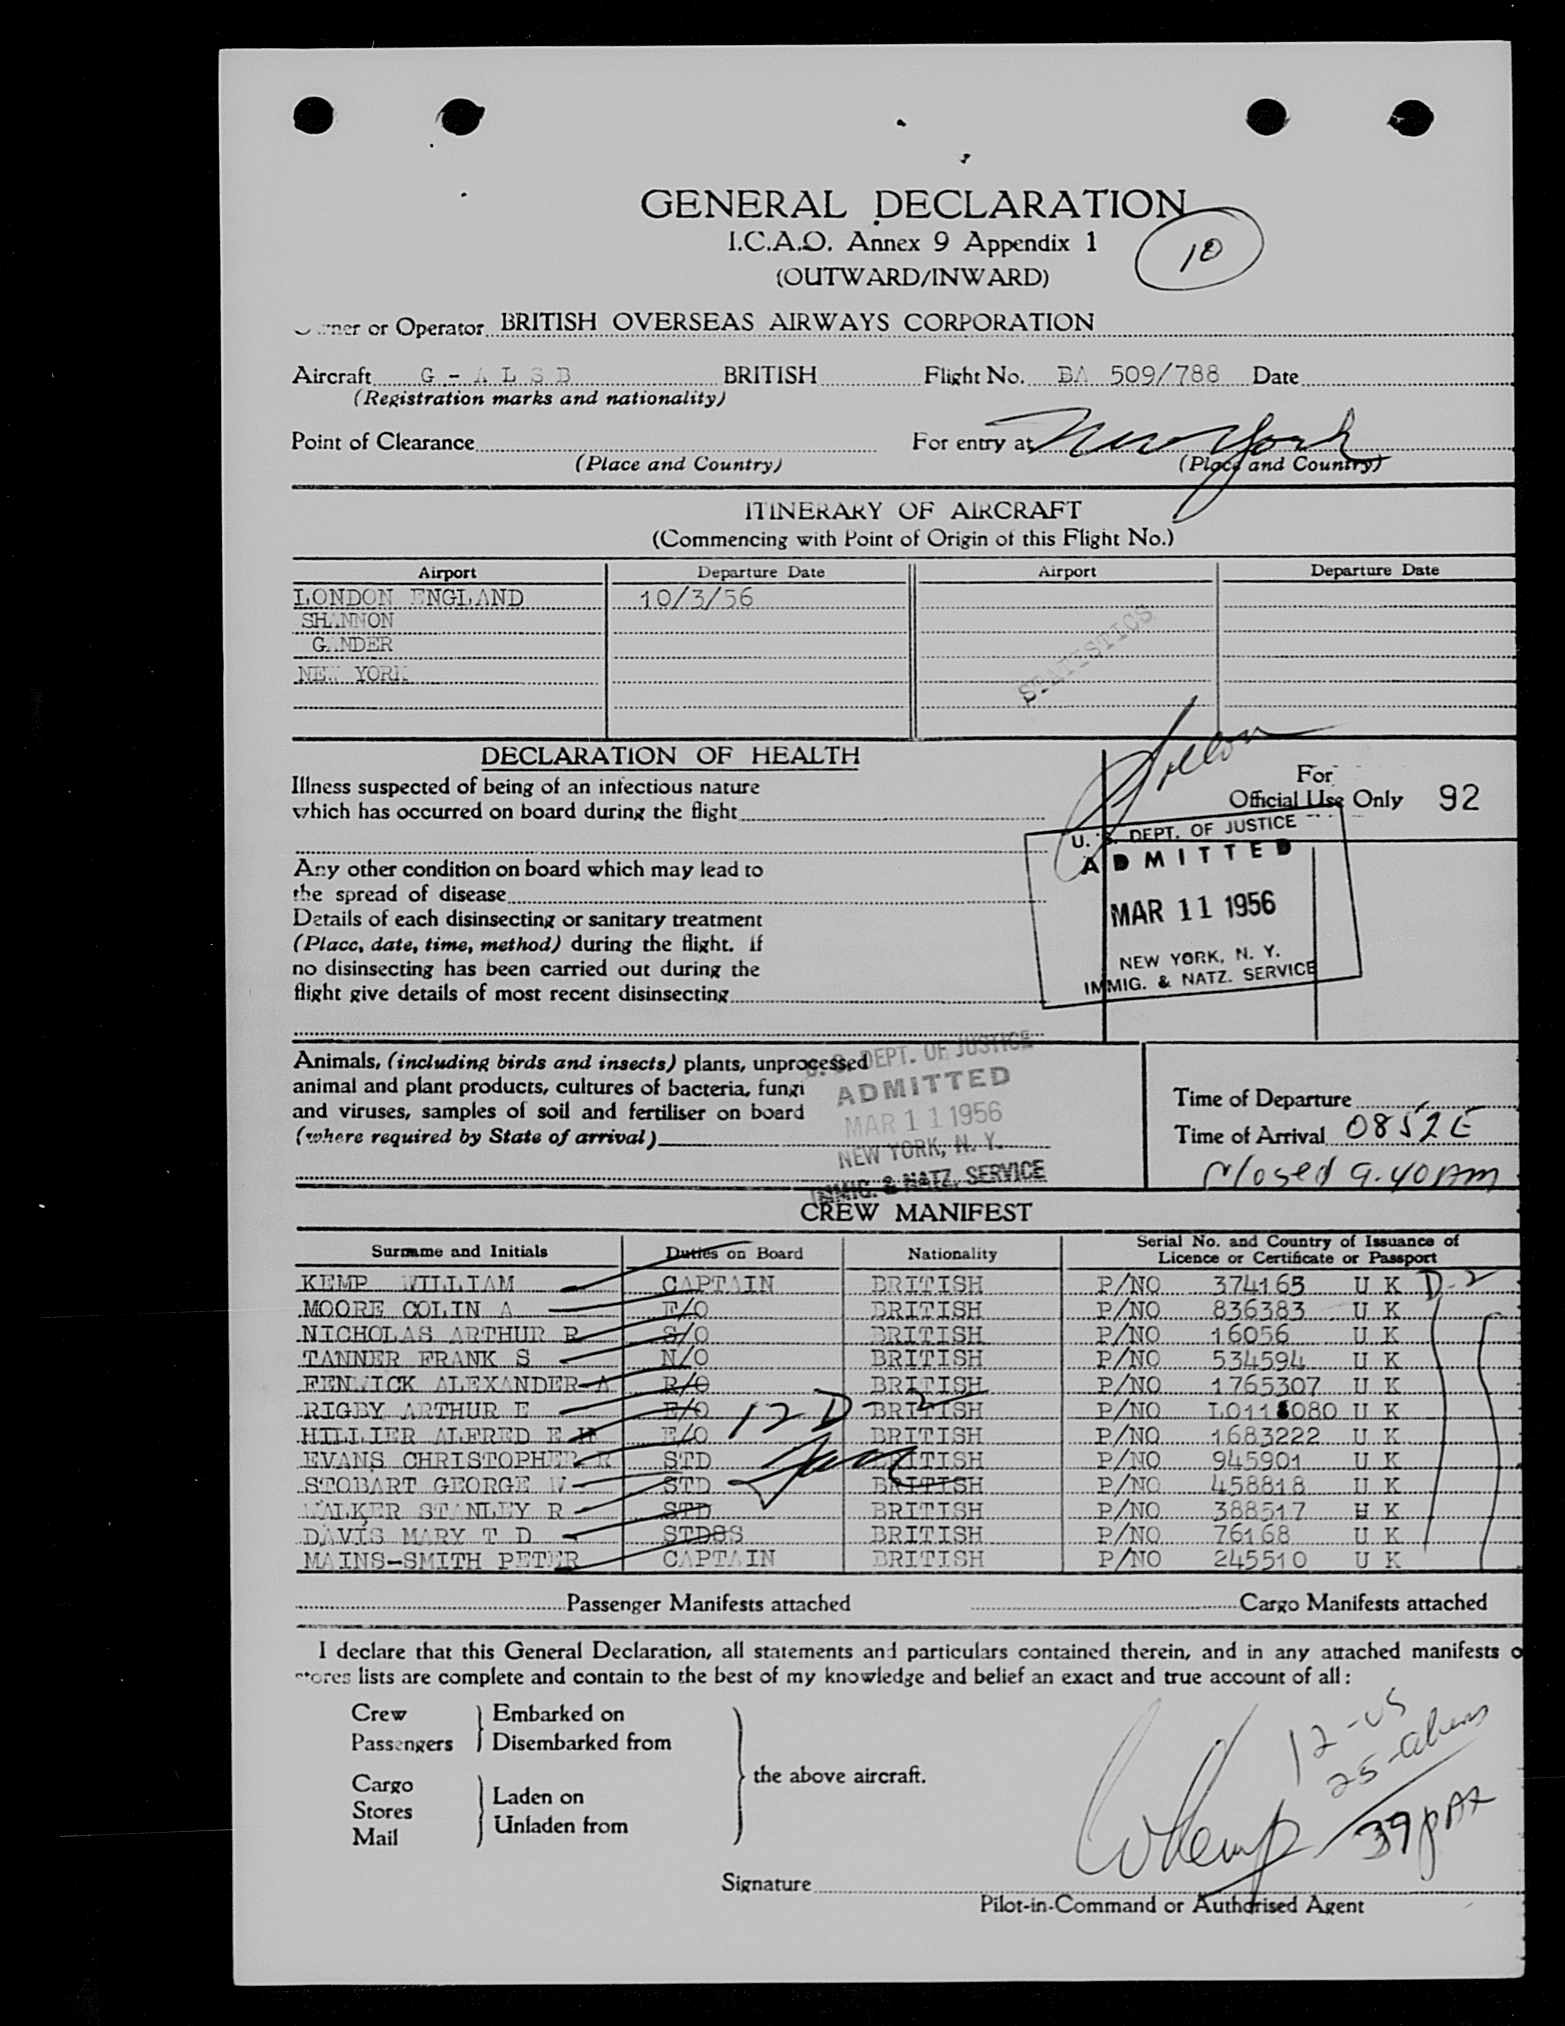 GENERAL DECLARATION
I.C.A.O. Annex 9 Appendix 1
10
(OUTWARD/INWARD)
or Operator BRITISH OVERSEAS AIRWAYS CORPORATION
Aircraft G - A L S B BRITISH Flight No. BA 509/788 Date
(Registration marks and nationality)
Point of Clearance For entry at New York
(Place and Country) (Place and Country)
ITINERARY OF AIRCRAFT
(Commencing with Point of Origin of this Flight No.)
Airport Departure Date Airport Departure Date
LONDON ENGLAND 10/3/56
SHANNON
GANDER
NEW YORK
STATISTICS
DECLARATION OF HEALTH
Illness suspected of being of an infectious nature
which has occurred on board during the flight
For
Official Use Only 92
U. S. DEPT. OF JUSTICE
ADMITTED
MAR 11 1956
NEW YORK, N. Y.
IMMIG. & NATZ. SERVICE
Any other condition on board which may lead to
the spread of disease
Details of each disinsecting or sanitary treatment
(Place, date, time, method) during the flight. If
no disinsecting has been carried out during the
flight give details of most recent disinsecting
Animals, (including birds and insects) plants, unprocessed
animal and plant products, cultures of bacteria, fungi
and viruses, samples of soil and fertiliser on board
(where required by State of arrival)
U. S. DEPT. OF JUSTICE
ADMITTED
MAR 11 1956
NEW YORK, N. Y.
IMMIG. & NATZ. SERVICE
Time of Departure
Time of Arrival 0852 E
Closed 9.40 AM
CREW MANIFEST
Surname and Initials Duties on Board Nationality Serial No. and Country of Issuance of
Licence or Certificate or Passport
KEMP WILLIAM CAPTAIN BRITISH P/NO 374165 U K D-2
MOORE COLIN A F/O BRITISH P/NO 836383 U K
NICHOLAS ARTHUR R S/O BRITISH P/NO 16056 U K
TANNER FRANK S N/O BRITISH P/NO 534594 U K
FENWICK ALEXANDER A R/O BRITISH P/NO 1765307 U K
RIGBY ARTHUR E E/O BRITISH P/NO U K
HILLIER ALFRED E H E/O BRITISH P/NO 1683222 U K
12 D-2
EVANS CHRISTOPHER R STD BRITISH P/NO 945901 U K
STOBART GEORGE W STD BRITISH P/NO 458818 U K
WALKER STANLEY R STD BRITISH P/NO 388517 U K
DAVIS MARY T D STDSS BRITISH P/NO 76168 U K
MAINS-SMITH PETER CAPTAIN BRITISH P/NO 245510 U K
Passenger Manifests attached Cargo Manifests attached
I declare that this General Declaration, all statements and particulars contained therein, and in any attached manifests o
stores lists are complete and contain to the best of my knowledge and belief an exact and true account of all :
Crew Embarked on
Passengers Disembarked from
the above aircraft.
Cargo Laden on
Stores
Mail Unladen from
12-US
25-aliens
39 PAX
W Kemp
Signature
Pilot-in-Command or Authorised Agent